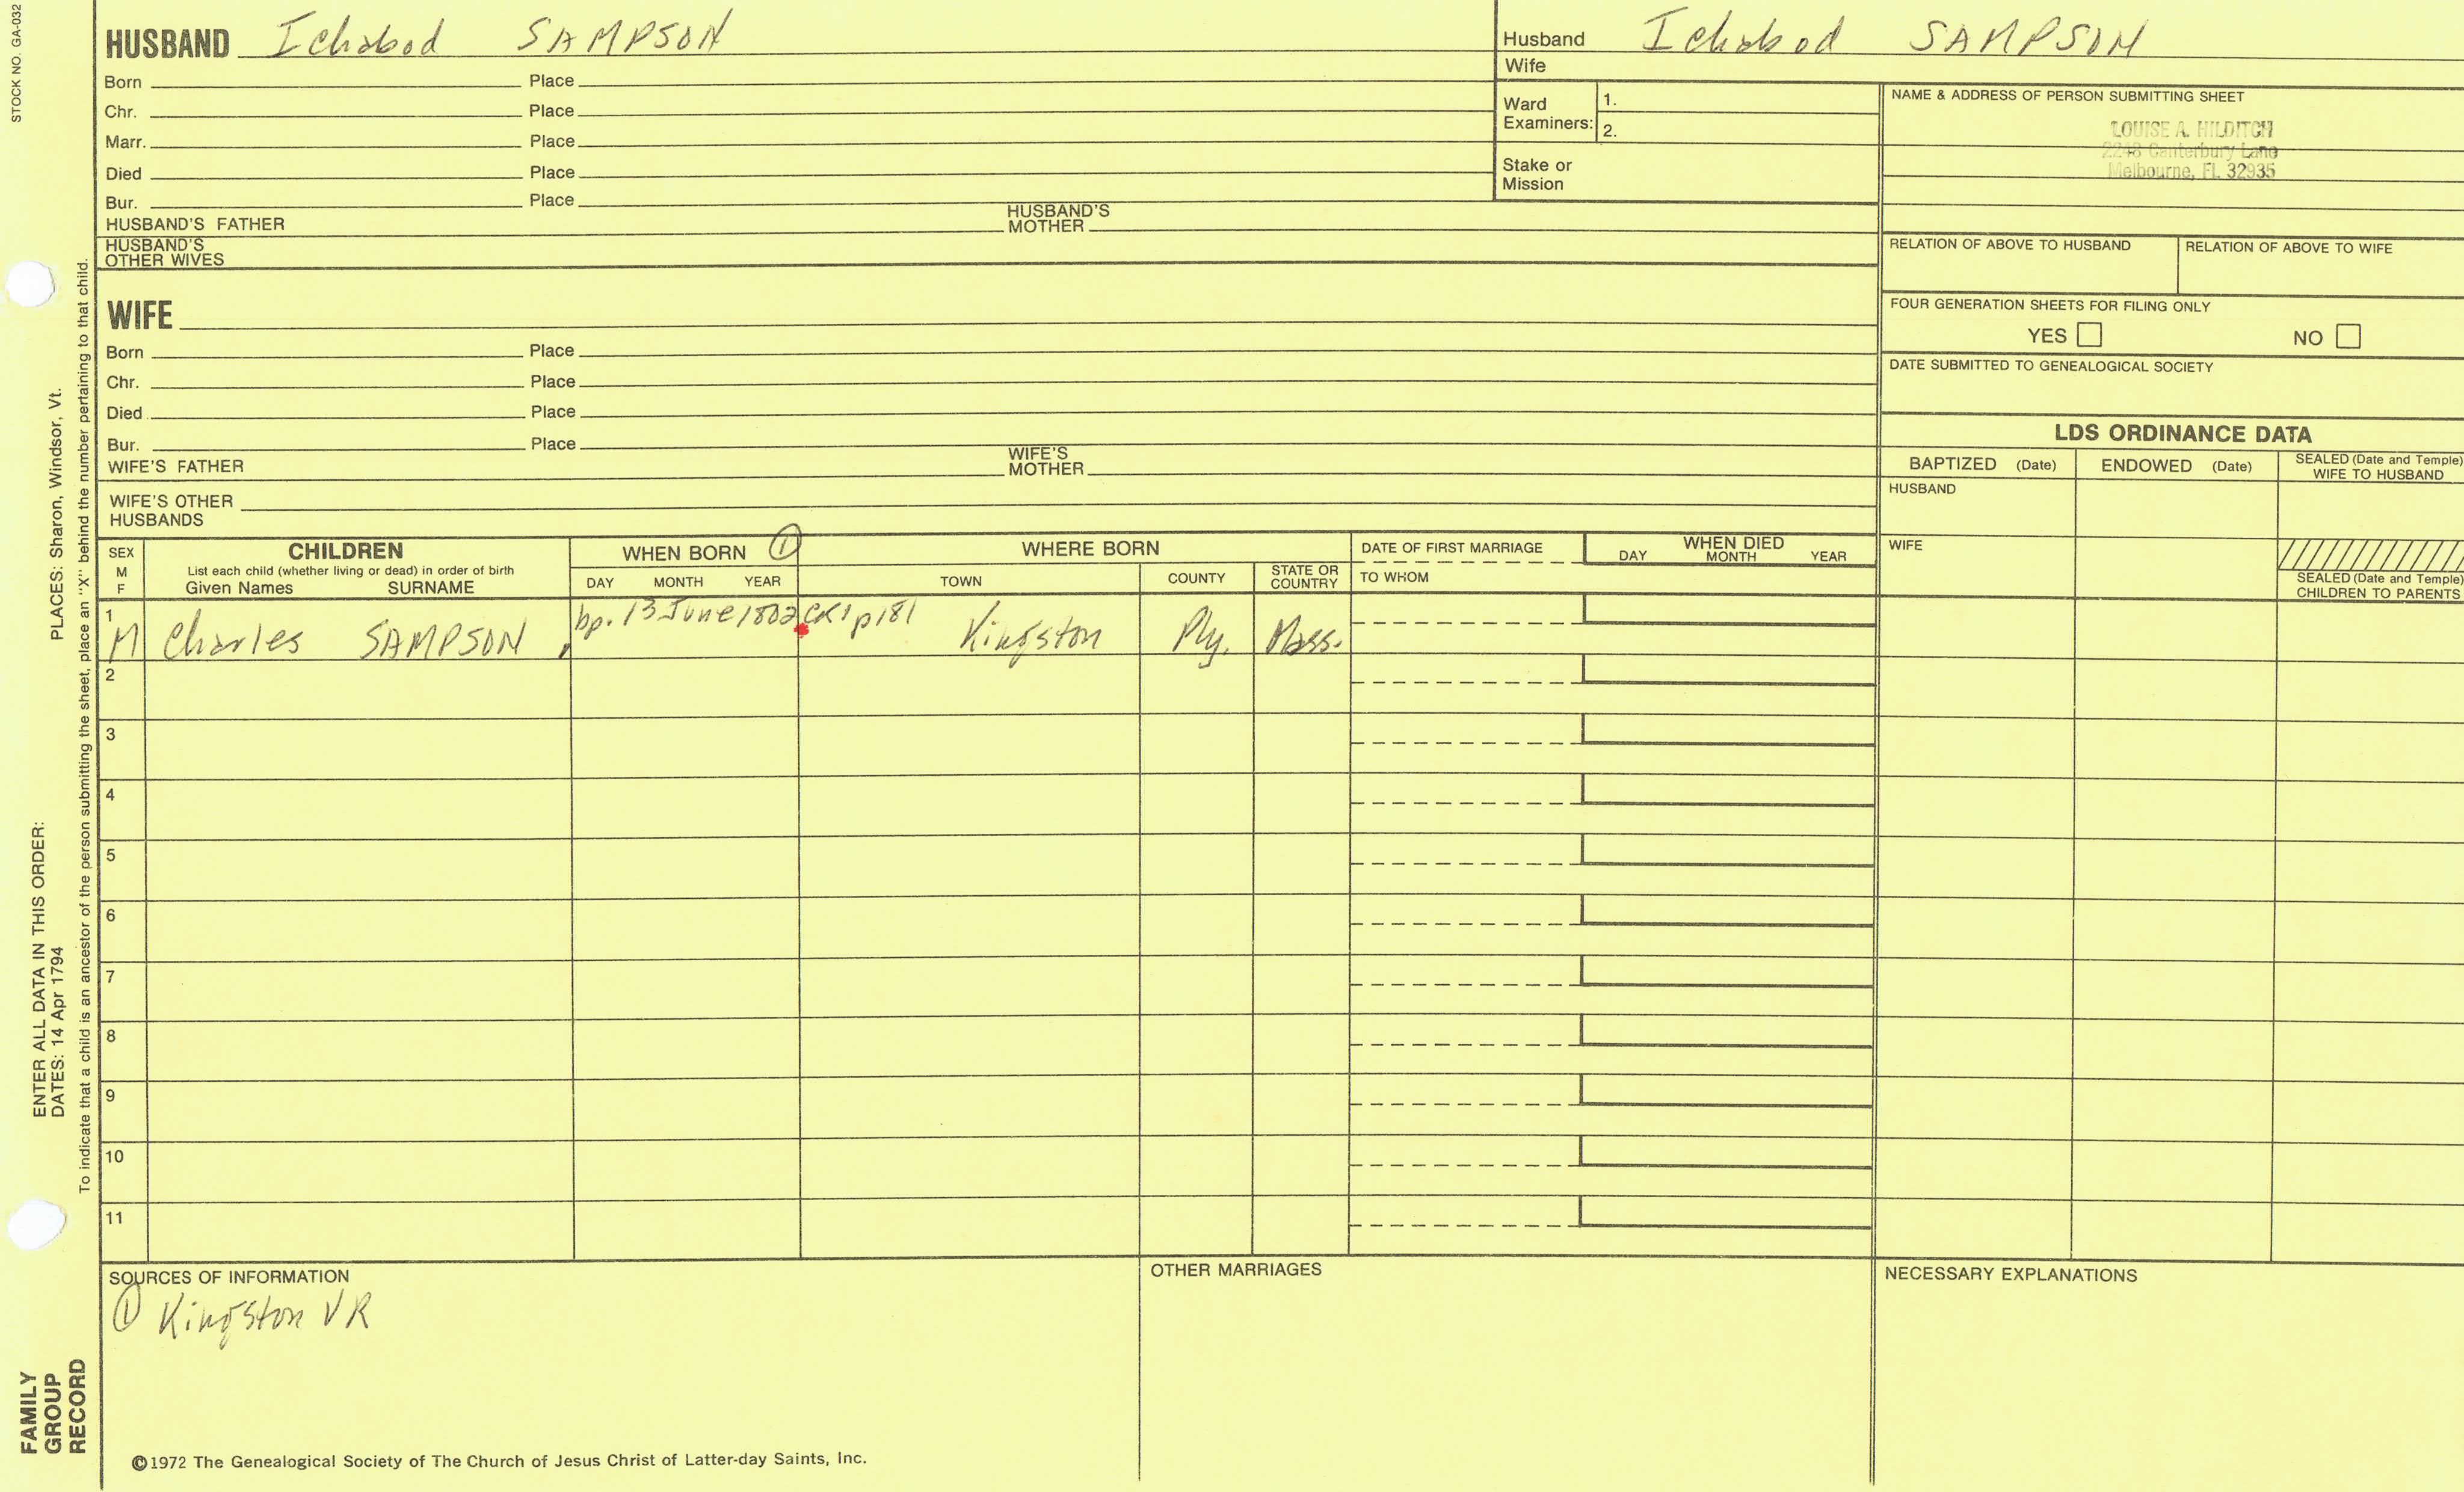 STOCK NO. GA-032
HUSBAND Ichabod SAMPSON
Born Place
Chr. Place
Marr. Place
Died Place
Bur. Place
HUSBAND'S FATHER HUSBAND'S MOTHER
HUSBAND'S OTHER WIVES
Husband Ichabod SAMPSON
Wife
Ward Examiners: 1.
2.
Stake or Mission
NAME & ADDRESS OF PERSON SUBMITTING SHEET
LOUISE A. HILDITCH
2248 Canterbury Lane
Melbourne, FL 32935
RELATION OF ABOVE TO HUSBAND RELATION OF ABOVE TO WIFE
FOUR GENERATION SHEETS FOR FILING ONLY
YES NO
DATE SUBMITTED TO GENEALOGICAL SOCIETY
WIFE
Born Place
Chr. Place
Died Place
Bur. Place
WIFE'S FATHER WIFE'S MOTHER
WIFE'S OTHER HUSBANDS
LDS ORDINANCE DATA
BAPTIZED (Date) ENDOWED (Date) SEALED (Date and Temple) WIFE TO HUSBAND
HUSBAND
WIFE
SEALED (Date and Temple) CHILDREN TO PARENTS
SEX M F
CHILDREN
List each child (whether living or dead) in order of birth
Given Names SURNAME
WHEN BORN ①
DAY MONTH YEAR
WHERE BORN
TOWN COUNTY STATE OR COUNTRY
DATE OF FIRST MARRIAGE
TO WHOM
WHEN DIED
DAY MONTH YEAR
1 M Charles SAMPSON bp. 13 June 1802 CR1 p181 Kingston Ply. Mass.
2
3
4
5
6
7
8
9
10
11
SOURCES OF INFORMATION
① Kingston VR
OTHER MARRIAGES
NECESSARY EXPLANATIONS
©1972 The Genealogical Society of The Church of Jesus Christ of Latter-day Saints, Inc.
ENTER ALL DATA IN THIS ORDER:
DATES: 14 Apr 1794 PLACES: Sharon, Windsor, Vt.
To indicate that a child is an ancestor of the person submitting the sheet, place an "X" behind the number pertaining to that child.
FAMILY
GROUP
RECORD